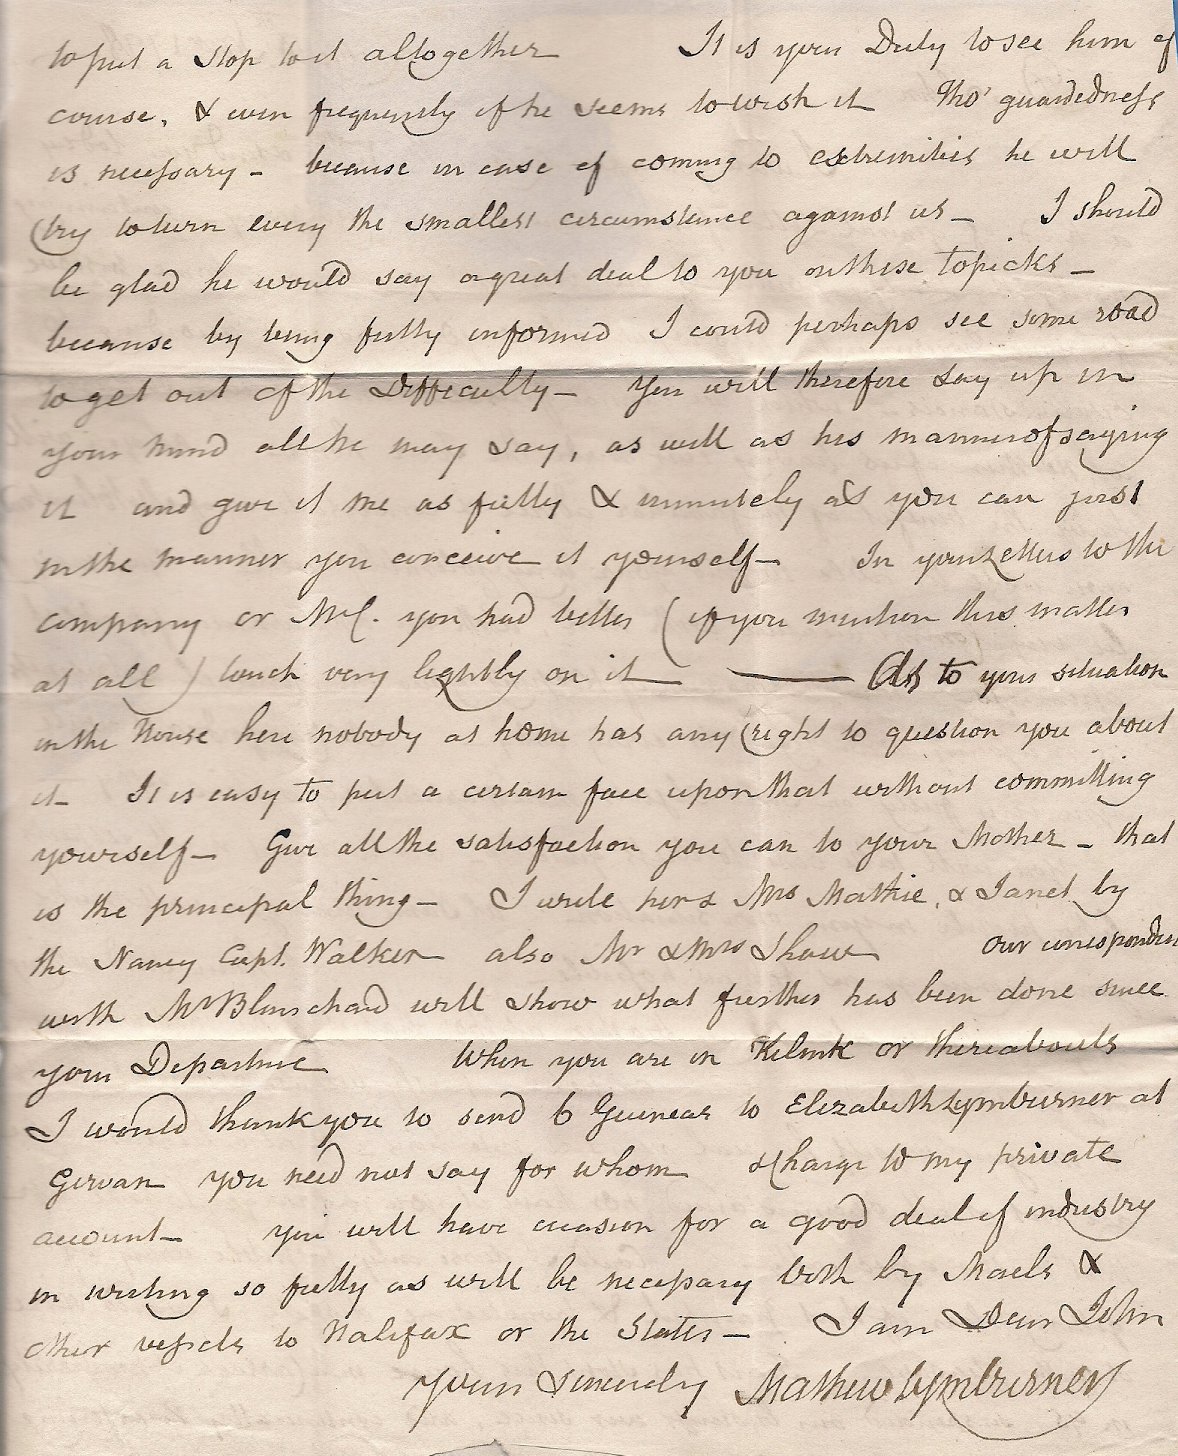 to put a Stop to it altogether It is your Duty to see him of
course, & even frequently if he seems to wish it Tho' guardedness
is necessary - because in case of coming to extremities he will
try to turn every the smallest circumstance against us - I should
be glad he would say a great deal to you on these topicks -
because by being fully informed I could perhaps see some road
to get out of the Difficulty - You will therefore Lay up in
your mind all he may say, as well as his manner of saying
it and give it me as fully & minutely as you can just
in the manner you conceive it yourself - In your Letters to the
Company or McC. you had better (if you mention this matter
at all) touch very lightly on it —— As to your situation
in the House here nobody at home has any right to question you about
it - It is easy to put a certain face upon that without committing
yourself - Give all the satisfaction you can to your Mother - that
is the principal thing - I write her & Mrs Mathie, & Janet by
the Nancy Capt. Walker also Mr & Mrs Shaw Our correspondce
with Mr Blanchard will show what further has been done since
your Departure When you are in Kilmk or thereabouts
I would thank you to send 6 Guineas to Elizabeth Lymburner at
Girvan you need not say for whom & Charge to my private
account - You will have occasion for a good deal of industry
in writing so fully as will be necessary both by Maels &
other vessels to Halifax or the States - I am Dear John
Yours Sincerely Mathew Lymburner